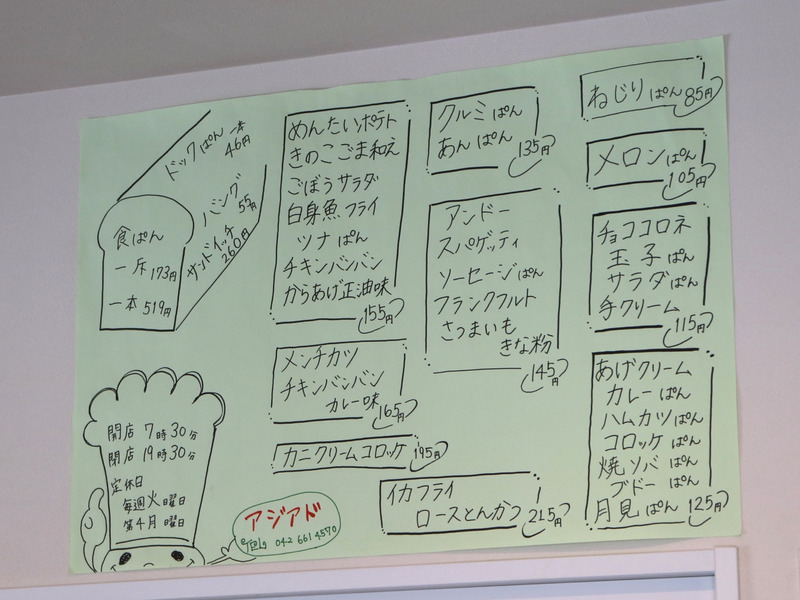 ドックぱん 一本
46円
バンズ 55円
サンドイッチ
260円
食ぱん
一斤 173円
一本 519円
めんたいポテト
きのこごま和え
ごぼうサラダ
白身魚フライ
ツナぱん
チキンバンバン
からあげ正油味
155円
メンチカツ
チキンバンバン
カレー味
165円
カニクリームコロッケ 195円
イカフライ
ロースとんかつ 215円
クルミぱん
あんぱん
135円
アンドー
スパゲッティ
ソーセージぱん
フランクフルト
さつまいも
きな粉
145円
ねじりぱん 85円
メロンぱん
105円
チョココロネ
玉子ぱん
サラダぱん
手クリーム
115円
あげクリーム
カレーぱん
ハムカツぱん
コロッケぱん
焼ソバぱん
ブドーぱん
月見ぱん 125円
開店 7時30分
閉店 19時30分
定休日
毎週火曜日
第4月曜日
アジアド
042 661 4570